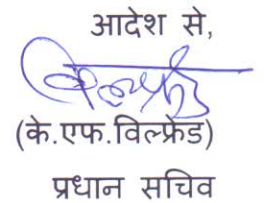 आदेश से,
(के.एफ.विल्फ्रेड)
प्रधान सचिव